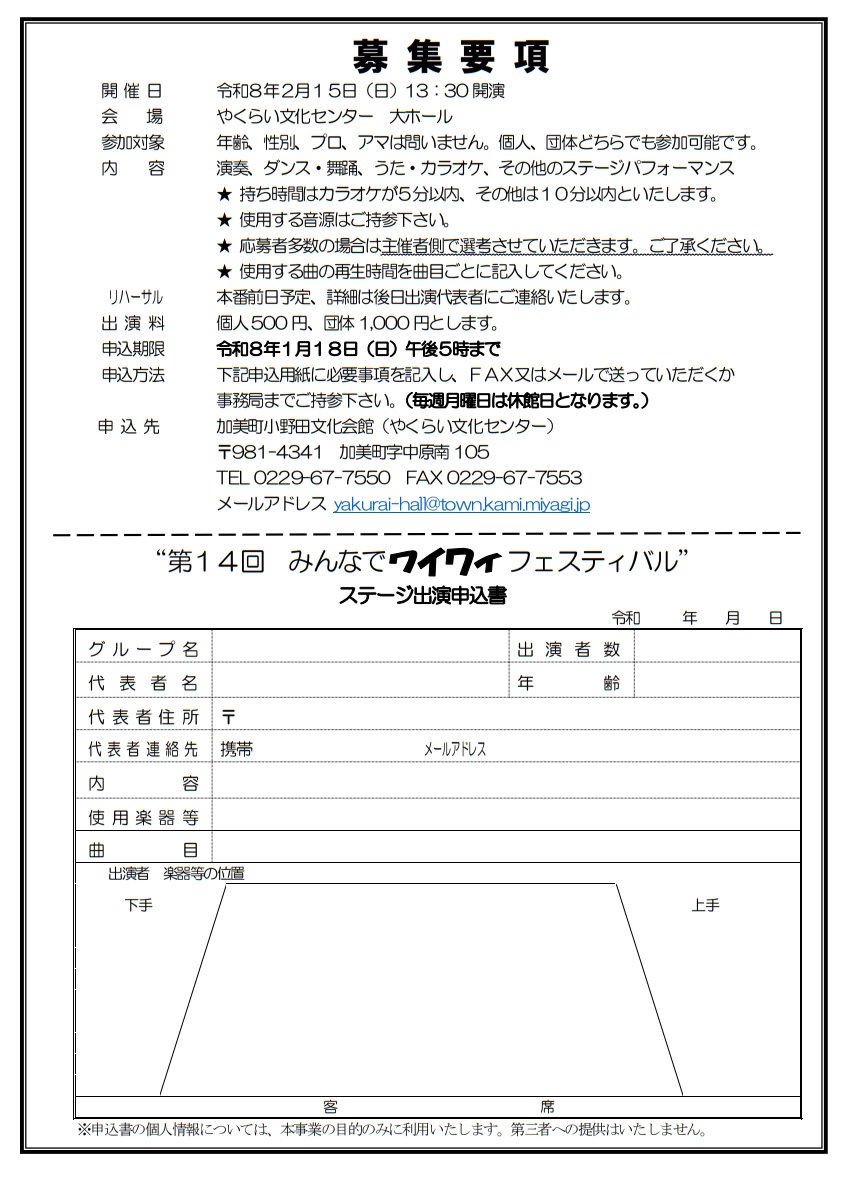 募集要項
開催日　令和８年２月１５日（日）13：30 開演
会場　やくらい文化センター　大ホール
参加対象　年齢、性別、プロ、アマは問いません。個人、団体どちらでも参加可能です。
内容　演奏、ダンス・舞踊、うた・カラオケ、その他のステージパフォーマンス
★ 持ち時間はカラオケが５分以内、その他は１０分以内といたします。
★ 使用する音源はご持参下さい。
★ 応募者多数の場合は主催者側で選考させていただきます。ご了承ください。
★ 使用する曲の再生時間を曲目ごとに記入してください。
リハーサル　本番前日予定、詳細は後日出演代表者にご連絡いたします。
出演料　個人500 円、団体 1,000 円とします。
申込期限　令和８年１月１８日（日）午後５時まで
申込方法　下記申込用紙に必要事項を記入し、ＦＡＸ又はメールで送っていただくか
事務局までご持参下さい。（毎週月曜日は休館日となります。）
申込先　加美町小野田文化会館（やくらい文化センター）
〒981-4341　加美町字中原南 105
TEL 0229-67-7550　FAX 0229-67-7553
メールアドレス yakurai-hall@town.kami.miyagi.jp
“第１４回　みんなでワイワィフェスティバル”
ステージ出演申込書
令和　　年　月　日
グループ名　出演者数
代表者名　年齢
代表者住所　〒
代表者連絡先　携帯　メールアドレス
内容
使用楽器等
曲目
出演者　楽器等の位置
下手　上手
客席
※申込書の個人情報については、本事業の目的のみに利用いたします。第三者への提供はいたしません。